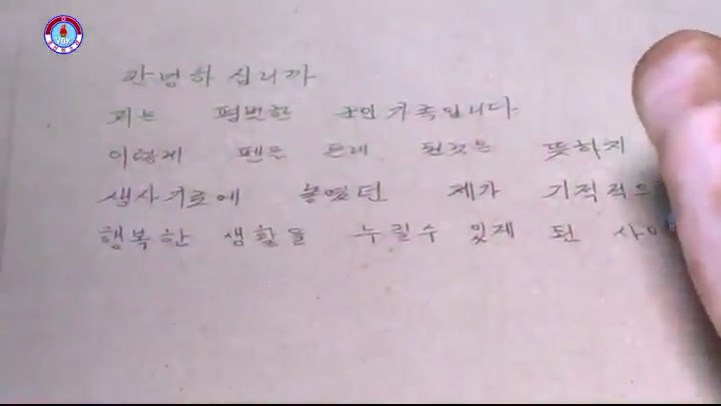 안녕하십니까
저는 평범한 군인가족입니다
이렇게 펜을 들게 된것은 뜻하지
생사기로에 놓였던 제가 기적적으
행복한 생활을 누릴수 있게 된 사